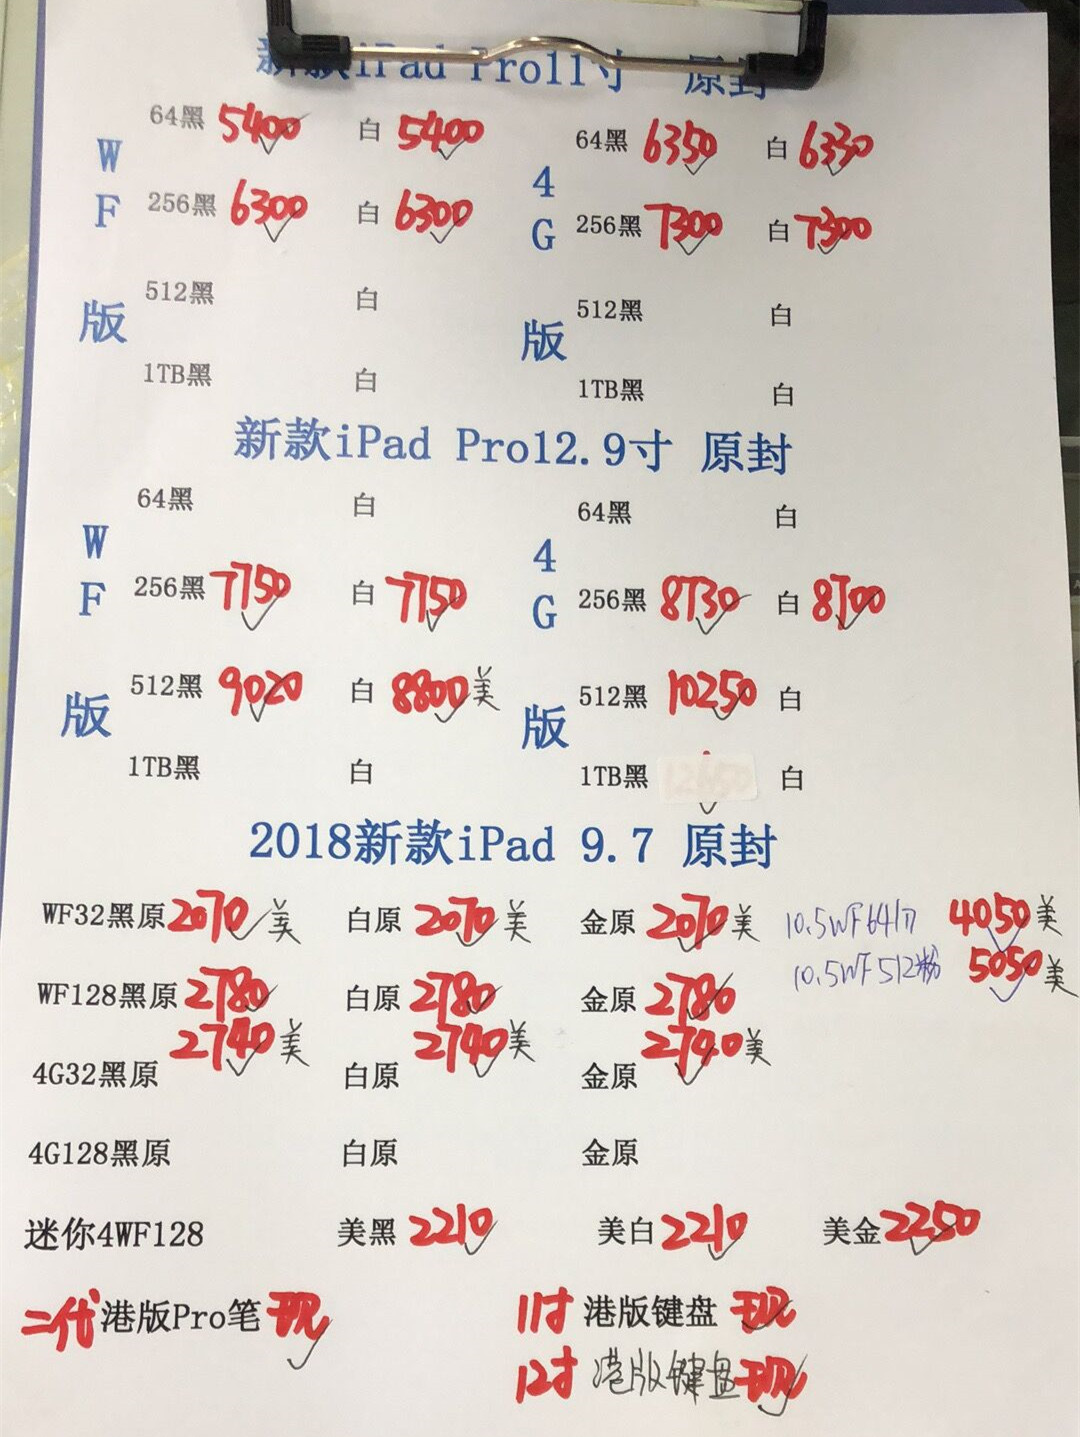 新款iPad Pro11寸 原封
WF版
64黑 5400 白 5400
256黑 6300 白 6300
512黑 白
1TB黑 白
4G版
64黑 6350 白 6330
256黑 7300 白 7300
512黑 白
1TB黑 白
新款iPad Pro12.9寸 原封
WF版
64黑 白
256黑 7750 白 7750
512黑 9020 白 8800美
1TB黑 白
4G版
64黑 白
256黑 8730 白 8700
512黑 10250 白
1TB黑 白
2018新款iPad 9.7 原封
WF32黑原 2070 美 白原 2070 美 金原 2070 美
10.5WF64 4050 美
10.5WF512粉 5050 美
WF128黑原 2780 白原 2780 金原 2780
2740 美 2740 美 2740 美
4G32黑原 白原 金原
4G128黑原 白原 金原
迷你4WF128 美黑 2210 美白 2210 美金 2250
二代港版Pro笔 现 11寸 港版键盘 现
12寸 港版键盘 现